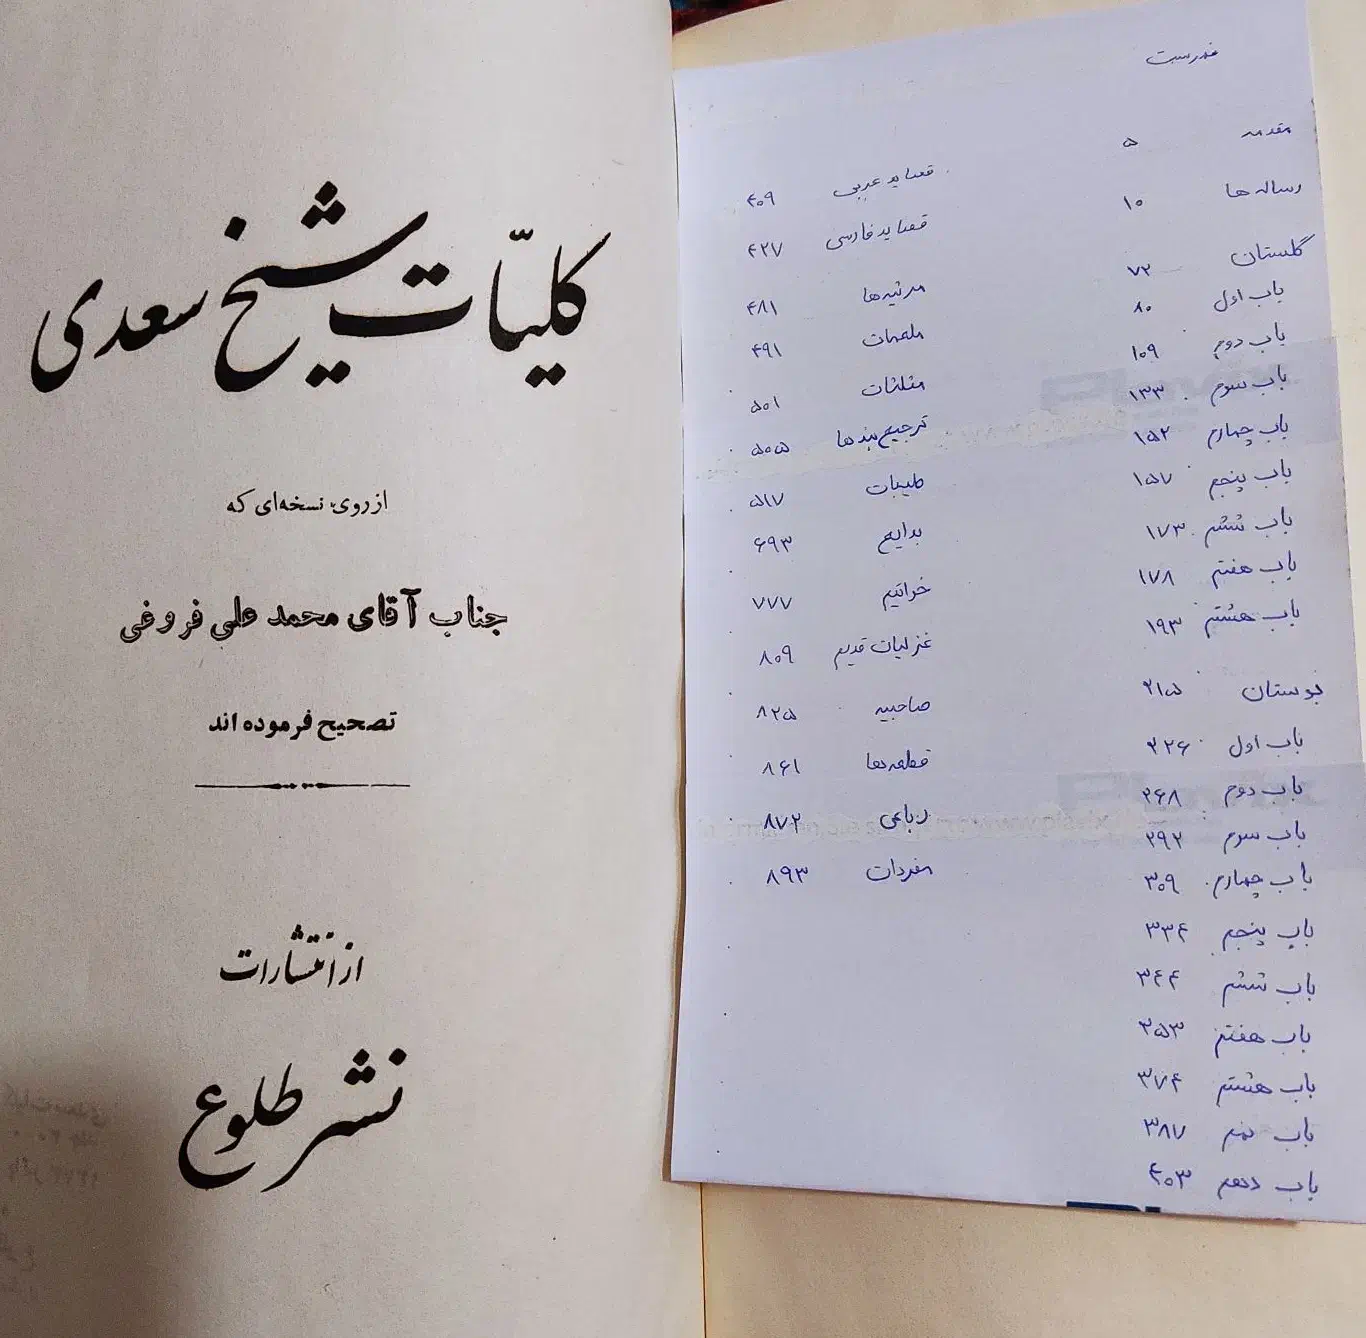 کلیّات شیخ سعدی
از روی نسخه‌ای که
جناب آقای محمد علی فروغی
تصحیح فرموده اند
از انتشارات
نشر طلوع
فهرست
مقدمه ۵
رساله ها ۱۰
گلستان ۷۲
باب اول ۸۰
باب دوم ۱۰۹
باب سوم ۱۳۳
باب چهارم ۱۵۲
باب پنجم ۱۵۷
باب ششم ۱۷۳
باب هفتم ۱۷۸
باب هشتم ۱۹۳
بوستان ۲۱۵
باب اول ۲۲۶
باب دوم ۲۶۸
باب سوم ۲۹۲
باب چهارم ۳۰۹
باب پنجم ۳۳۴
باب ششم ۳۴۴
باب هفتم ۳۵۳
باب هشتم ۳۷۴
باب نهم ۳۸۷
باب دهم ۴۰۳
قصاید عربی ۴۰۹
قصاید فارسی ۴۲۷
مرثیه ها ۴۸۱
ملمعات ۴۹۱
مثلثات ۵۰۱
ترجیع بندها ۵۰۵
طیبات ۵۱۷
بدایع ۶۹۳
خواتیم ۷۷۷
غزلیات قدیم ۸۰۹
صاحبیه ۸۲۵
قطعه ها ۸۶۱
رباعی ۸۷۲
مفردات ۸۹۳